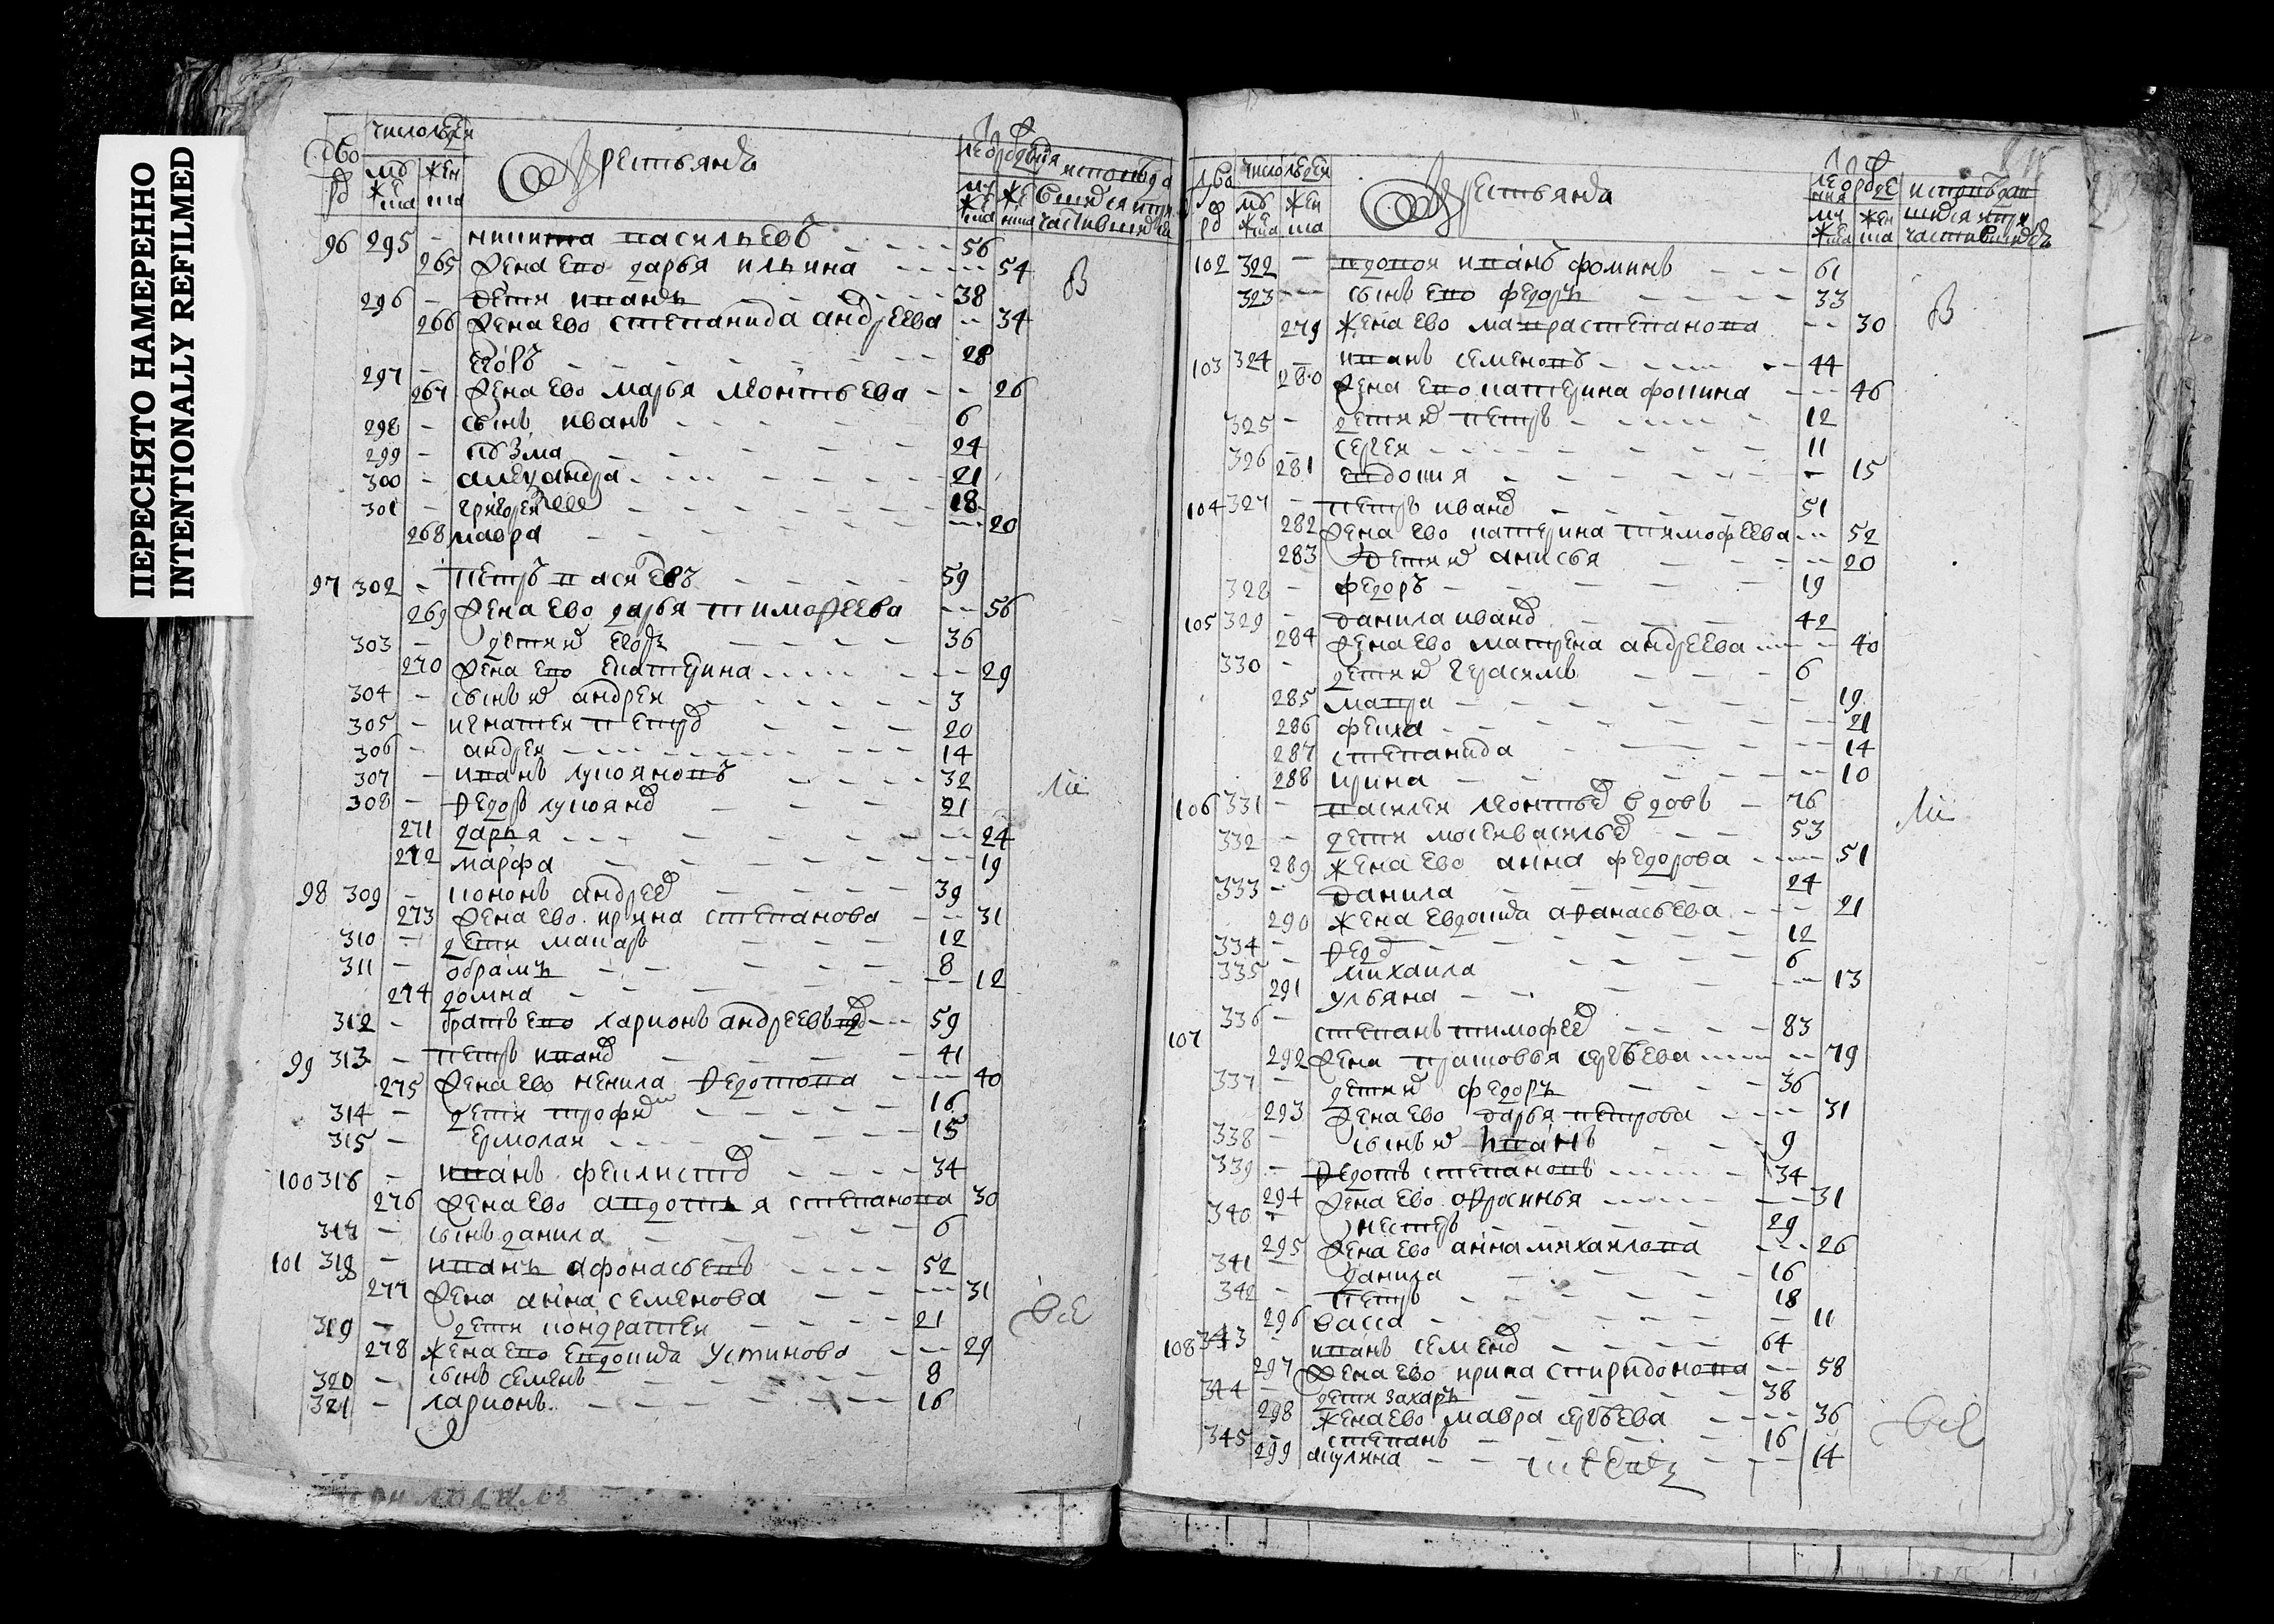 ПЕРЕСНЯТО НАМЕРЕННО
INTENTIONALLY REFILMED
число людей
крестьяне
96 295 - никита васильевъ - - - 56
265 жена ево дарья ильина - - - 54
296 - дети иванъ - - - 38
266 жена ево степанида андреева - - 34
297 - егоръ - - - 28
267 жена ево марья леонтьева - - 26
298 - сынъ иванъ - - - 6
299 - козма - - - 24
300 - александра - - - 21
301 - григореи - - - 18
268 мавра - - - 20
97 302 - петръ васильевъ - - - 59
269 жена ево дарья тимофеева - - 56
303 - дети их егоръ - - - 36
270 жена ево екатерина - - - 29
304 - сынъ их андреи - - - 3
305 - игнатеи петров - - - 20
306 - андреи - - - 14
307 - иванъ лукояновъ - - - 32
308 - федоръ лукоянов - - - 21
271 дарья - - - 24
272 марфа - - - 19
98 309 - кононъ андреев - - - 39
273 жена ево ирина степанова - - - 31
310 - дети макаръ - - - 12
311 - обрамъ - - - 8
274 домна - - - 12
312 - братъ ево ларионъ андреевъ - - - 59
99 313 - петръ иванов - - - 41
275 жена ево ненила федотова - - - 40
314 - дети трофим - - - 16
315 - ермолаи - - - 15
100 316 - иванъ феклистов - - - 34
276 жена ево авдотья степанова 30
317 - сынъ данила - - - 6
101 318 - иванъ афонасьевъ - - - 52
277 жена анна семенова - - - 31
319 - дети кондратеи - - - 21
278 жена ево евдокида устинова - - - 29
320 - сынъ семенъ - - - 8
321 - ларионъ - - - 16
В
все
число людеи
крестьяне
102 322 - вдовои иванъ фоминъ - - - 61
323 - - сынъ ево федоръ - - - 33
279 жена ево мавра степанова - - 30
103 324 - иванъ семеновъ - - - 44
280 жена ево катерина фокина - - - 46
325 - дети их петръ - - - 12
326 - сергеи - - - 11
281 евдокия - - - 15
104 327 - петръ иванов - - - 51
282 жена ево катерина тимофеева - - 52
283 дети их анисья - - - 20
328 - федоръ - - - 19
105 329 - данила иванов - - - 42
284 жена ево матрена андреева - - - 40
330 - дети их герасимъ - - - 6
285 мавра - - - 19
286 фекла - - - 21
287 степанида - - - 14
288 ирина - - - 10
106 331 - василеи леонтьев вдовъ - 76
332 - дети мосеи васильев - - 53
289 жена ево анна федорова - - - 51
333 - данила - - - 24
290 жена евдокида афанасьева - - - 21
334 - федор - - - 12
335 - михаила - - - 6
291 ульяна - - - 13
107 336 - степанъ тимофеев - - - 83
292 жена прасковья сергѣева - - - 79
337 - дети их федоръ - - - 36
293 жена ево дарья петрова - - - 31
338 - сынъ их иванъ - - - 9
339 - федотъ степановъ - - - 34
294 жена ево афросинья - - - 31
340 - нестеръ - - - 29
295 жена ево анна михаилова - - - 26
341 - данила - - - 16
342 - петръ - - - 18
296 васса - - - 11
108 343 - иванъ семенов - - - 64
297 жена ево ирина спиридонова - - 58
344 - дети захаръ - - - 38
298 жена ево мавра сергѣева - - - 36
345 - степанъ - - - 16
299 акулина - - - 14
В
все